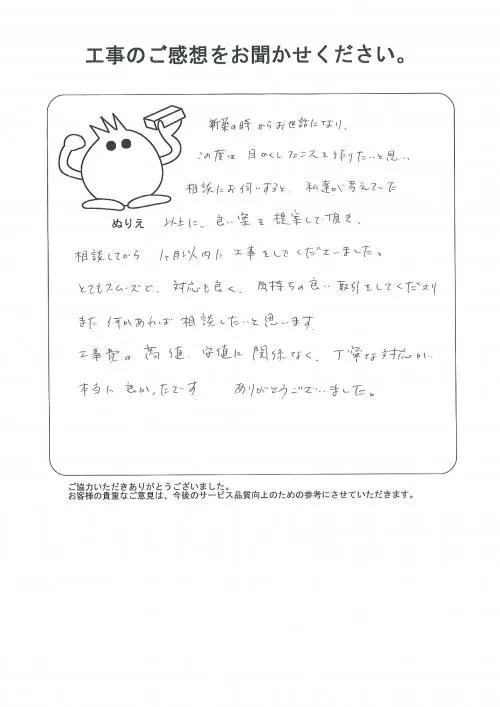 工事のご感想をお聞かせください。
新築の時からお世話になり、
この度は目かくしフェンスを作りたいと思い
相談にお伺いすると、私達が考えていた
ぬりえ 以上に、良い案を提案して頂き、
相談してから 1ヶ月以内に工事をしてくださいました。
とてもスムーズで、対応も良く、気持ちの良い取引をしてくださり
また何かあれば相談したいと思います
工事費の高値、安値に関係なく、丁寧な対応が、
本当に良かったです ありがとうございました。
ご協力いただきありがとうございました。
お客様の貴重なご意見は、今後のサービス品質向上のための参考にさせていただきます。